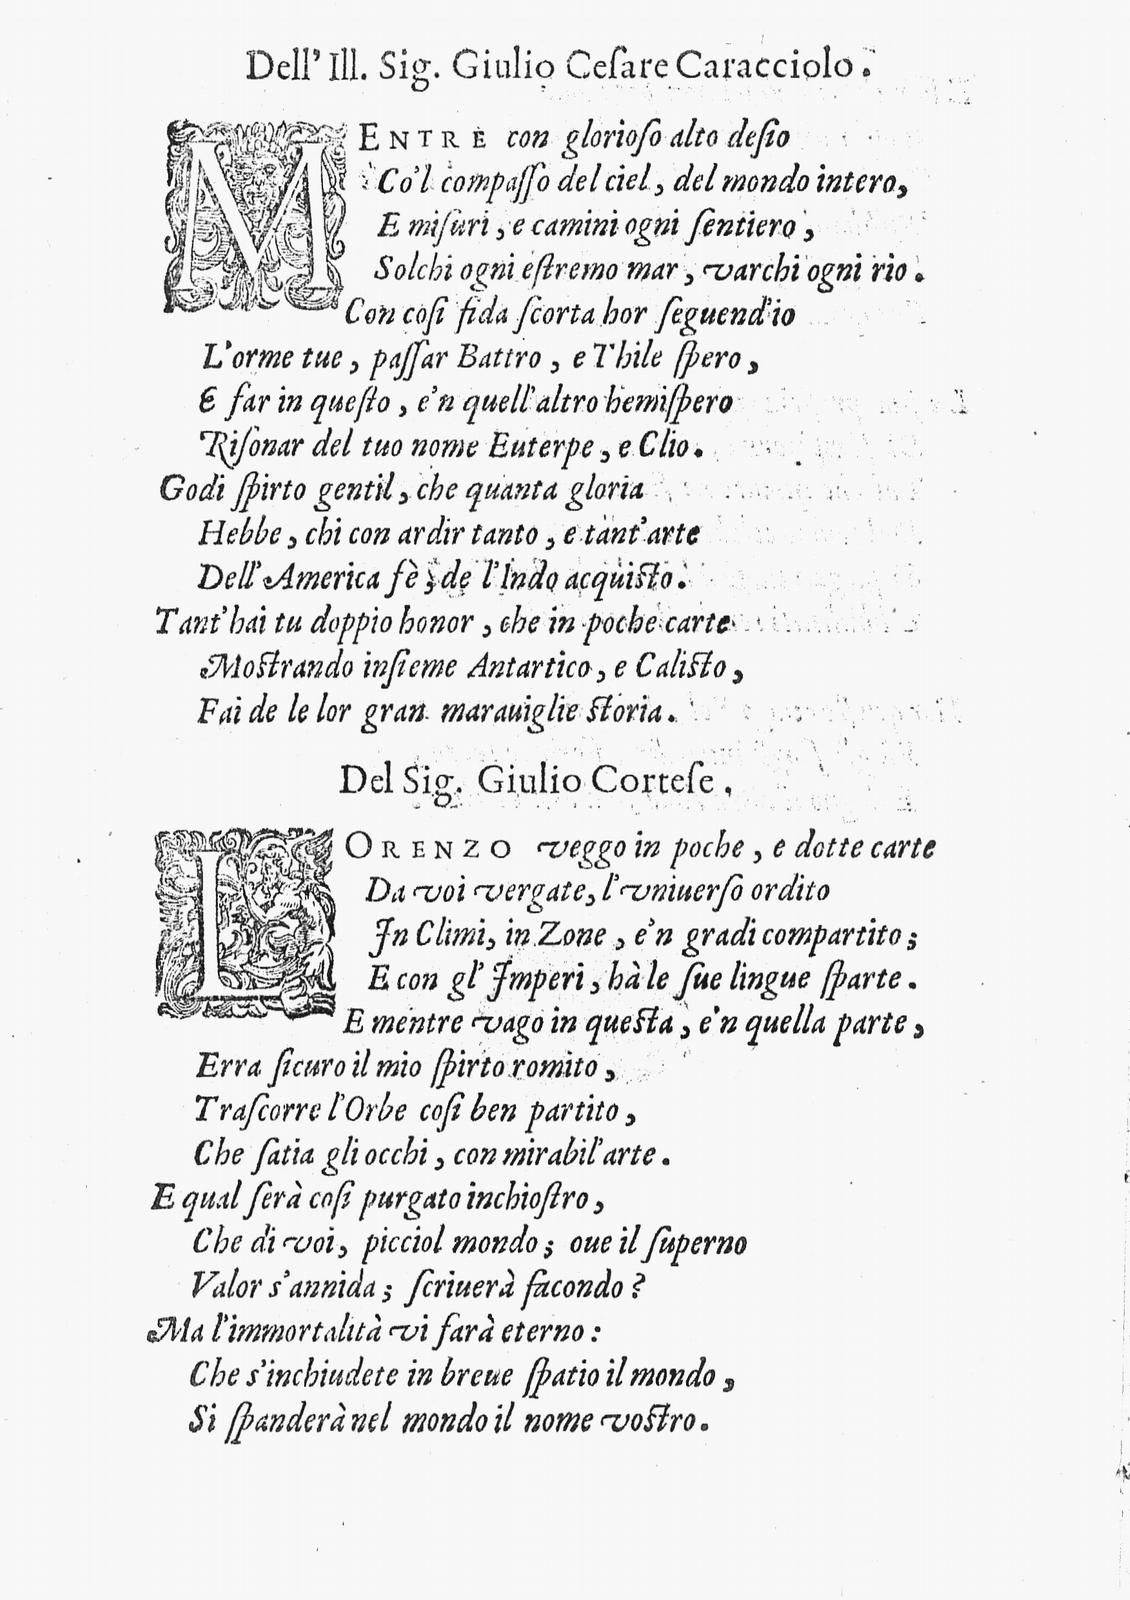 Dell' Ill. Sig. Giulio Ceſare Caracciolo.
MENTRE con glorioſo alto deſio
Co'l compaſſo del ciel, del mondo intero,
E miſuri, e camini ogni ſentiero,
Solchi ogni eſtremo mar, varchi ogni rio.
Con coſi fida ſcorta hor ſeguend'io
L'orme tue, paſſar Battro, e Thile ſpero,
E far in queſto, e'n quell'altro hemiſpero
Riſonar del tuo nome Euterpe, e Clio.
Godi ſpirto gentil, che quanta gloria
Hebbe, chi con ardir tanto, e tant'arte
Dell'America fè, de l'Indo acquiſto.
Tant'hai tu doppio honor, che in poche carte
Moſtrando inſieme Antartico, e Caliſto,
Fai de le lor gran marauiglie ſtoria.
Del Sig. Giulio Corteſe.
LORENZO veggo in poche, e dotte carte
Da voi vergate, l'vniuerſo ordito
In Climi, in Zone, e'n gradi compartito;
E con gl'Imperi, hà le ſue lingue ſparte.
E mentre vago in queſta, e'n quella parte,
Erra ſicuro il mio ſpirto romito,
Traſcorre l'Orbe coſi ben partito,
Che ſatia gli occhi, con mirabil'arte.
E qual ſerà coſi purgato inchioſtro,
Che di voi, picciol mondo; oue il ſuperno
Valor s'annida; ſcriuerà facondo?
Ma l'immortalità vi farà eterno:
Che s'inchiudete in breue ſpatio il mondo,
Si ſpanderà nel mondo il nome voſtro.